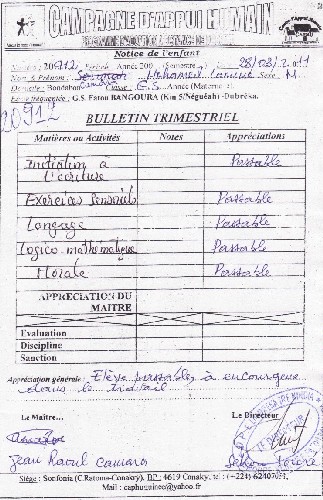 CAMPAGNE D'APPUI HUMAIN
Notice de l'enfant
20912 Année 200 (Semestre 28/03/2011
Nom & Prénoms: Mohamed Lamine Sexe: M
Bondabon G.S Année (Maternelle)
G.S. Fatou BANGOURA (Km 5/Néguéah)-Dubréka.
20912
BULLETIN TRIMESTRIEL
Matières ou Activités Notes Appréciations
Initiation à l'écriture Passable
Exercices Sensoriels Passable
Langage Passable
Logico-mathématique Passable
Morale Passable
APPRECIATION DU MAITRE
Evaluation
Discipline
Sanction
Appréciation générale: Elève passable, à encourager
dans le travail
Le Maître... Le Directeur
Jean Raoul Camara Sékou Touré
Siège: Sonfonia (C.Ratoma-Conakry), BP: 4619 Conakry, tel: (+224) 62407031,
Mail: caphuguinee@yahoo.fr